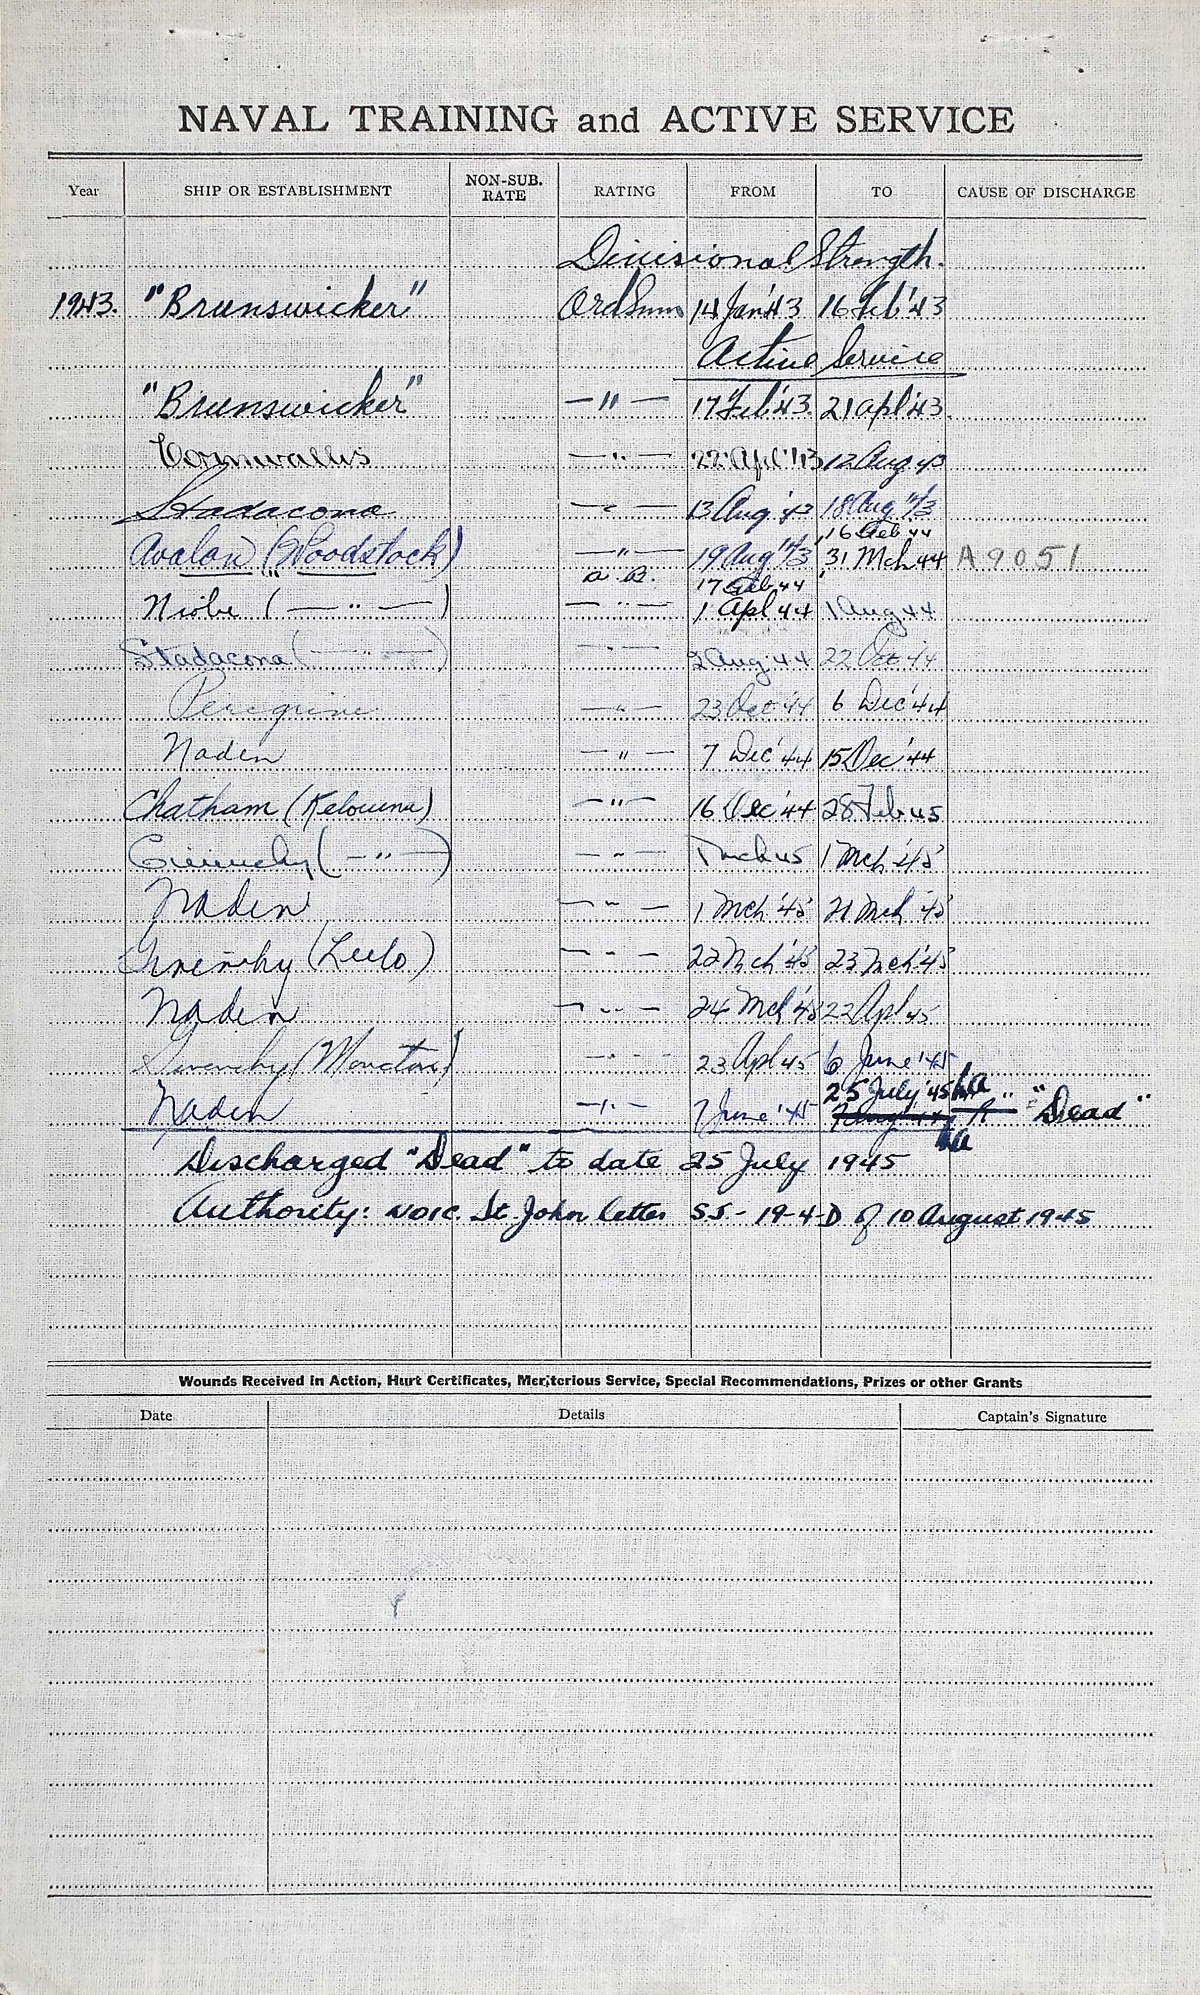 NAVAL TRAINING and ACTIVE SERVICE
Year SHIP OR ESTABLISHMENT NON-SUB. RATE RATING FROM TO CAUSE OF DISCHARGE
Divisional Strength.
1943. "Brunswicker" OrdSmn 14 Jan'43 16 Feb'43
Active Service
"Brunswicker" —"— 17 Feb'43. 21 Apl'43.
Cornwallis —"— 22 Apl'43 12 Aug 43
Stadacona —"— 13 Aug'43 18 Aug '43
16 Feb 44
Avalon (Woodstock) —"— 19 Aug '43 31 Mch 44 A9051
A.B. 17 Feb 44
Niobe (—"—) —"— 1 Apl 44 1 Aug 44
Stadacona (—"—) —"— 2 Aug'44 22 Oct'44
Peregrine —"— 23 Oct'44 6 Dec'44
Naden —"— 7 Dec'44 15 Dec'44
Chatham (Kelowna) —"— 16 Dec'44 28 Feb 45
Givenchy (—"—) —"— 1 Mch 45 1 Mch '45
Naden —"— 1 Mch '45 21 Mch '45
Givenchy (Leelo) —"— 22 Mch '45 23 Mch '45
Naden —"— 24 Mch '45 22 Apl 45
Givenchy (Moncton) —"— 23 Apl 45 6 June '45
25 July '45
Naden —"— 7 June '45 "Dead"
Discharged "Dead" to date 25 July 1945
Authority: NOIC. St. John letter SS-19-4-D of 10 August 1945
Wounds Received in Action, Hurt Certificates, Meritorious Service, Special Recommendations, Prizes or other Grants
Date Details Captain's Signature